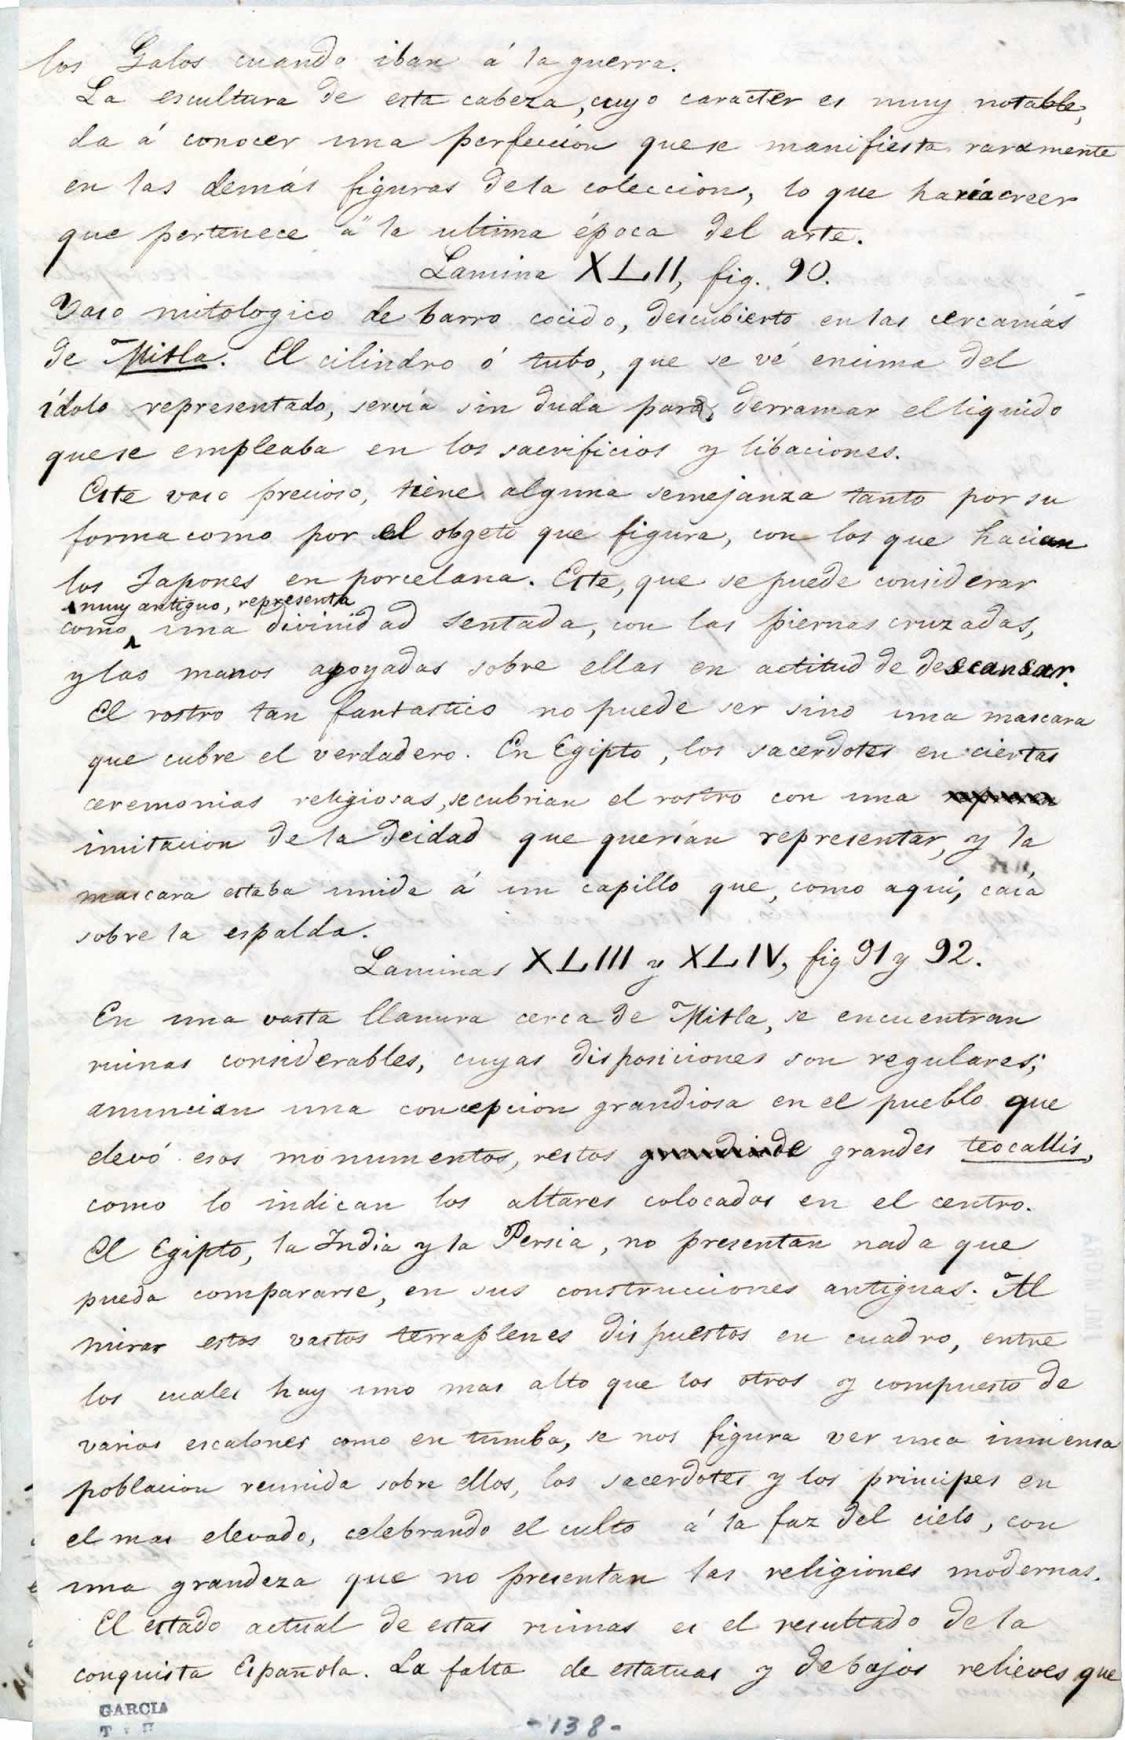 los Galos cuando iban á la guerra.
La escultura de esta cabeza, cuyo caracter es muy notable,
da á conocer una perfección que se manifiesta raramente
en las demás figuras de la coleccion, lo que haria creer
que pertenece á la ultima época del arte.
Lamina XLII, fig. 90.
Vaso mitologico de barro cocido, descubierto en las cercamás
de Mitla. El cilindro ó tubo, que se vé encima del
ídolo representado, servia sin duda para derramar el liquido
que se empleaba en los sacrificios y libaciones.
Este vaso precioso, tiene alguna semejanza tanto por su
forma como por el objeto que figura, con los que hacian
los Japones en porcelana. Este, que se puede considerar
muy antiguo, representa
como una divinidad sentada, con las piernas cruzadas,
y las manos apoyadas sobre ellas en actitud de descansar.
El rostro tan fantastico no puede ser sino una mascara
que cubre el verdadero. En Egipto, los sacerdotes en ciertas
ceremonias religiosas, se cubrian el rostro con una
imitacion de la deidad que querían representar, y la
mascara estaba unida á un capillo que, como aqui, caía
sobre la espalda.
Laminas XLIII y XLIV, fig 91 y 92.
En una vasta llanura cerca de Mitla, se encuentran
ruinas considerables, cuyas disposiciones son regulares;
anuncian una concepcion grandiosa en el pueblo que
elevó esos monumentos, restos grandes teocallis,
como lo indican los altares colocados en el centro.
El Egipto, la India y la Persia, no presentan nada que
pueda compararse, en sus construcciones antiguas. Al
mirar estos vastos terraplenes dispuestos en cuadro, entre
los cuales hay uno mas alto que los otros y compuesto de
varios escalones como en tumba, se nos figura ver una inmensa
poblacion reunida sobre ellos, los sacerdotes y los principes en
el mas elevado, celebrando el culto á la faz del cielo, con
una grandeza que no presentan las religiones modernas.
El estado actual de estas ruinas es el resultado de la
conquista Española. La falta de estatuas y de bajos relieves que
GARCIA
-138-